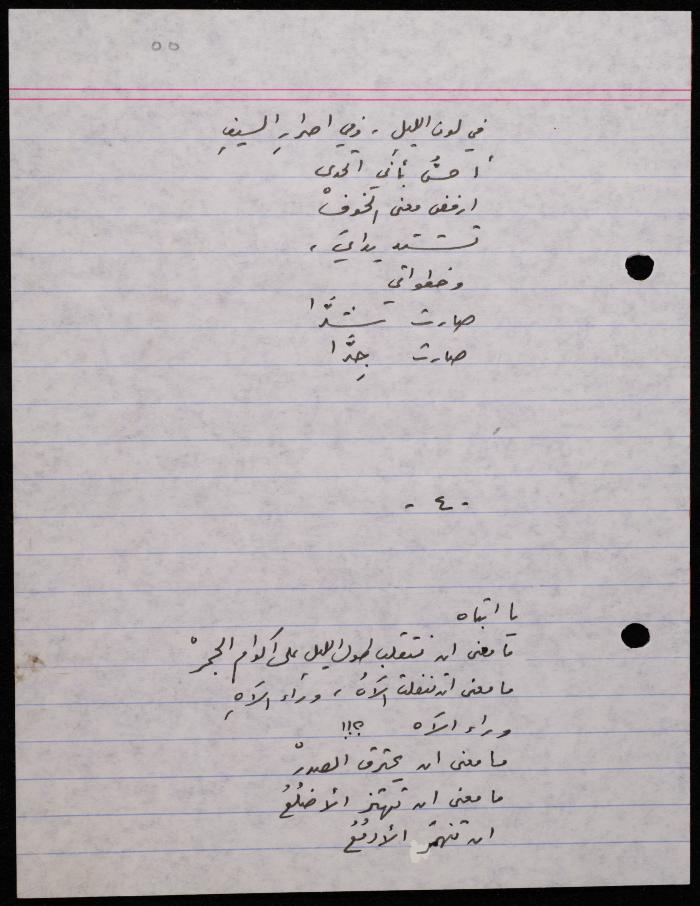 ٥٥
في لون الليل، وفي احمرارِ السيفِ
أحسُّ بأني أتحدى
ارفض معنى الخوفْ
تشتد يدايَ،
وخطواتي
صارت شدَّا
صارت جِدَّا
- ٤ -
يا ابتاه
ما معنى ان نتقلب طول الليلِ على اكوام الجمرْ
ما معنى ان تنفلت الآهُ، وراء الآهِ
وراء الآه ؟!!!
ما معنى ان يحترق الصدرْ
ما معنى ان تهتز الأضلُعُ
ان تنهمر الأدمُعُ